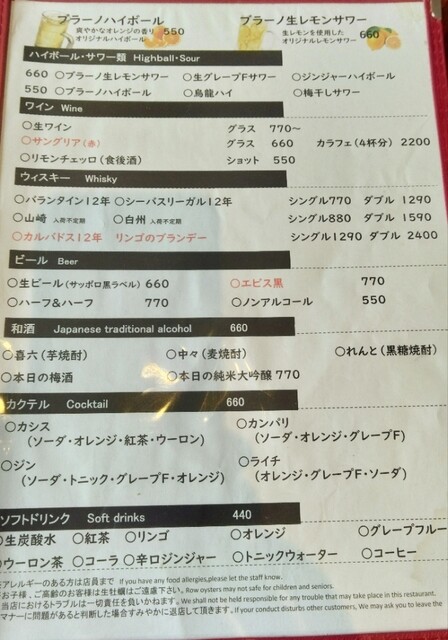 プラーノハイボール
爽やかなオレンジの香り
オリジナルハイボール
550
プラーノ生レモンサワー
生レモンを使用した
オリジナルレモンサワー
660
ハイボール・サワー類 Highball・Sour
660 ○プラーノ生レモンサワー ○生グレープFサワー ○ジンジャーハイボール
550 ○プラーノハイボール ○烏龍ハイ ○梅干しサワー
ワイン Wine
○生ワイン グラス 770〜
○サングリア(赤) グラス 660 カラフェ(4杯分) 2200
○リモンチェッロ(食後酒) ショット 550
ウィスキー Whisky
○バランタイン12年 ○シーバスリーガル12年 シングル770 ダブル 1290
○山崎 入荷不定期 ○白州 入荷不定期 シングル880 ダブル 1590
○カルバドス12年 リンゴのブランデー シングル1290 ダブル 2400
ビール Beer
○生ビール(サッポロ黒ラベル) 660 ○エビス黒 770
○ハーフ&ハーフ 770 ○ノンアルコール 550
和酒 Japanese traditional alcohol 660
○喜六(芋焼酎) ○中々(麦焼酎) ○れんと(黒糖焼酎)
○本日の梅酒 ○本日の純米大吟醸 770
カクテル Cocktail 660
○カシス
(ソーダ・オレンジ・紅茶・ウーロン)
○カンパリ
(ソーダ・オレンジ・グレープF)
○ジン
(ソーダ・トニック・グレープF・オレンジ)
○ライチ
(オレンジ・グレープF・ソーダ)
ソフトドリンク Soft drinks 440
○生炭酸水 ○紅茶 ○リンゴ ○オレンジ ○グレープフルー
○ウーロン茶 ○コーラ ○辛口ジンジャー ○トニックウォーター ○コーヒー
アレルギーのある方は店員まで If you have any food allergies,please let the staff know.
お子様、ご高齢のお客様は生牡蠣はご遠慮下さい。Row oysters may not safe for children and seniors.
当店におけるトラブルは一切責任を負いかねます。We shall not be held responsible for any trouble that may take place in this restaurant.
マナーに問題があると判断した場合すみやかに退店して頂きます。If your conduct disturbs other customers, We may ask you to leave the